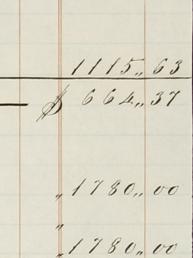 1115,, 63
$ 664,, 37
,, 1780,, 00
,,
,, 1780,, 00